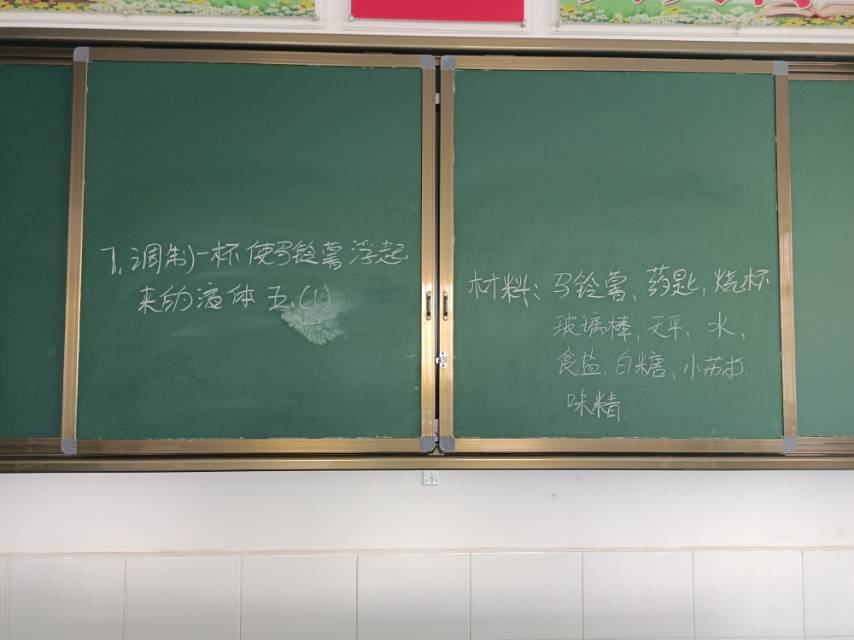 7、调制一杯使马铃薯浮起
来的液体 五、(1)
材料：马铃薯、药匙、烧杯
玻璃棒、天平、水、
食盐、白糖、小苏打、
味精.